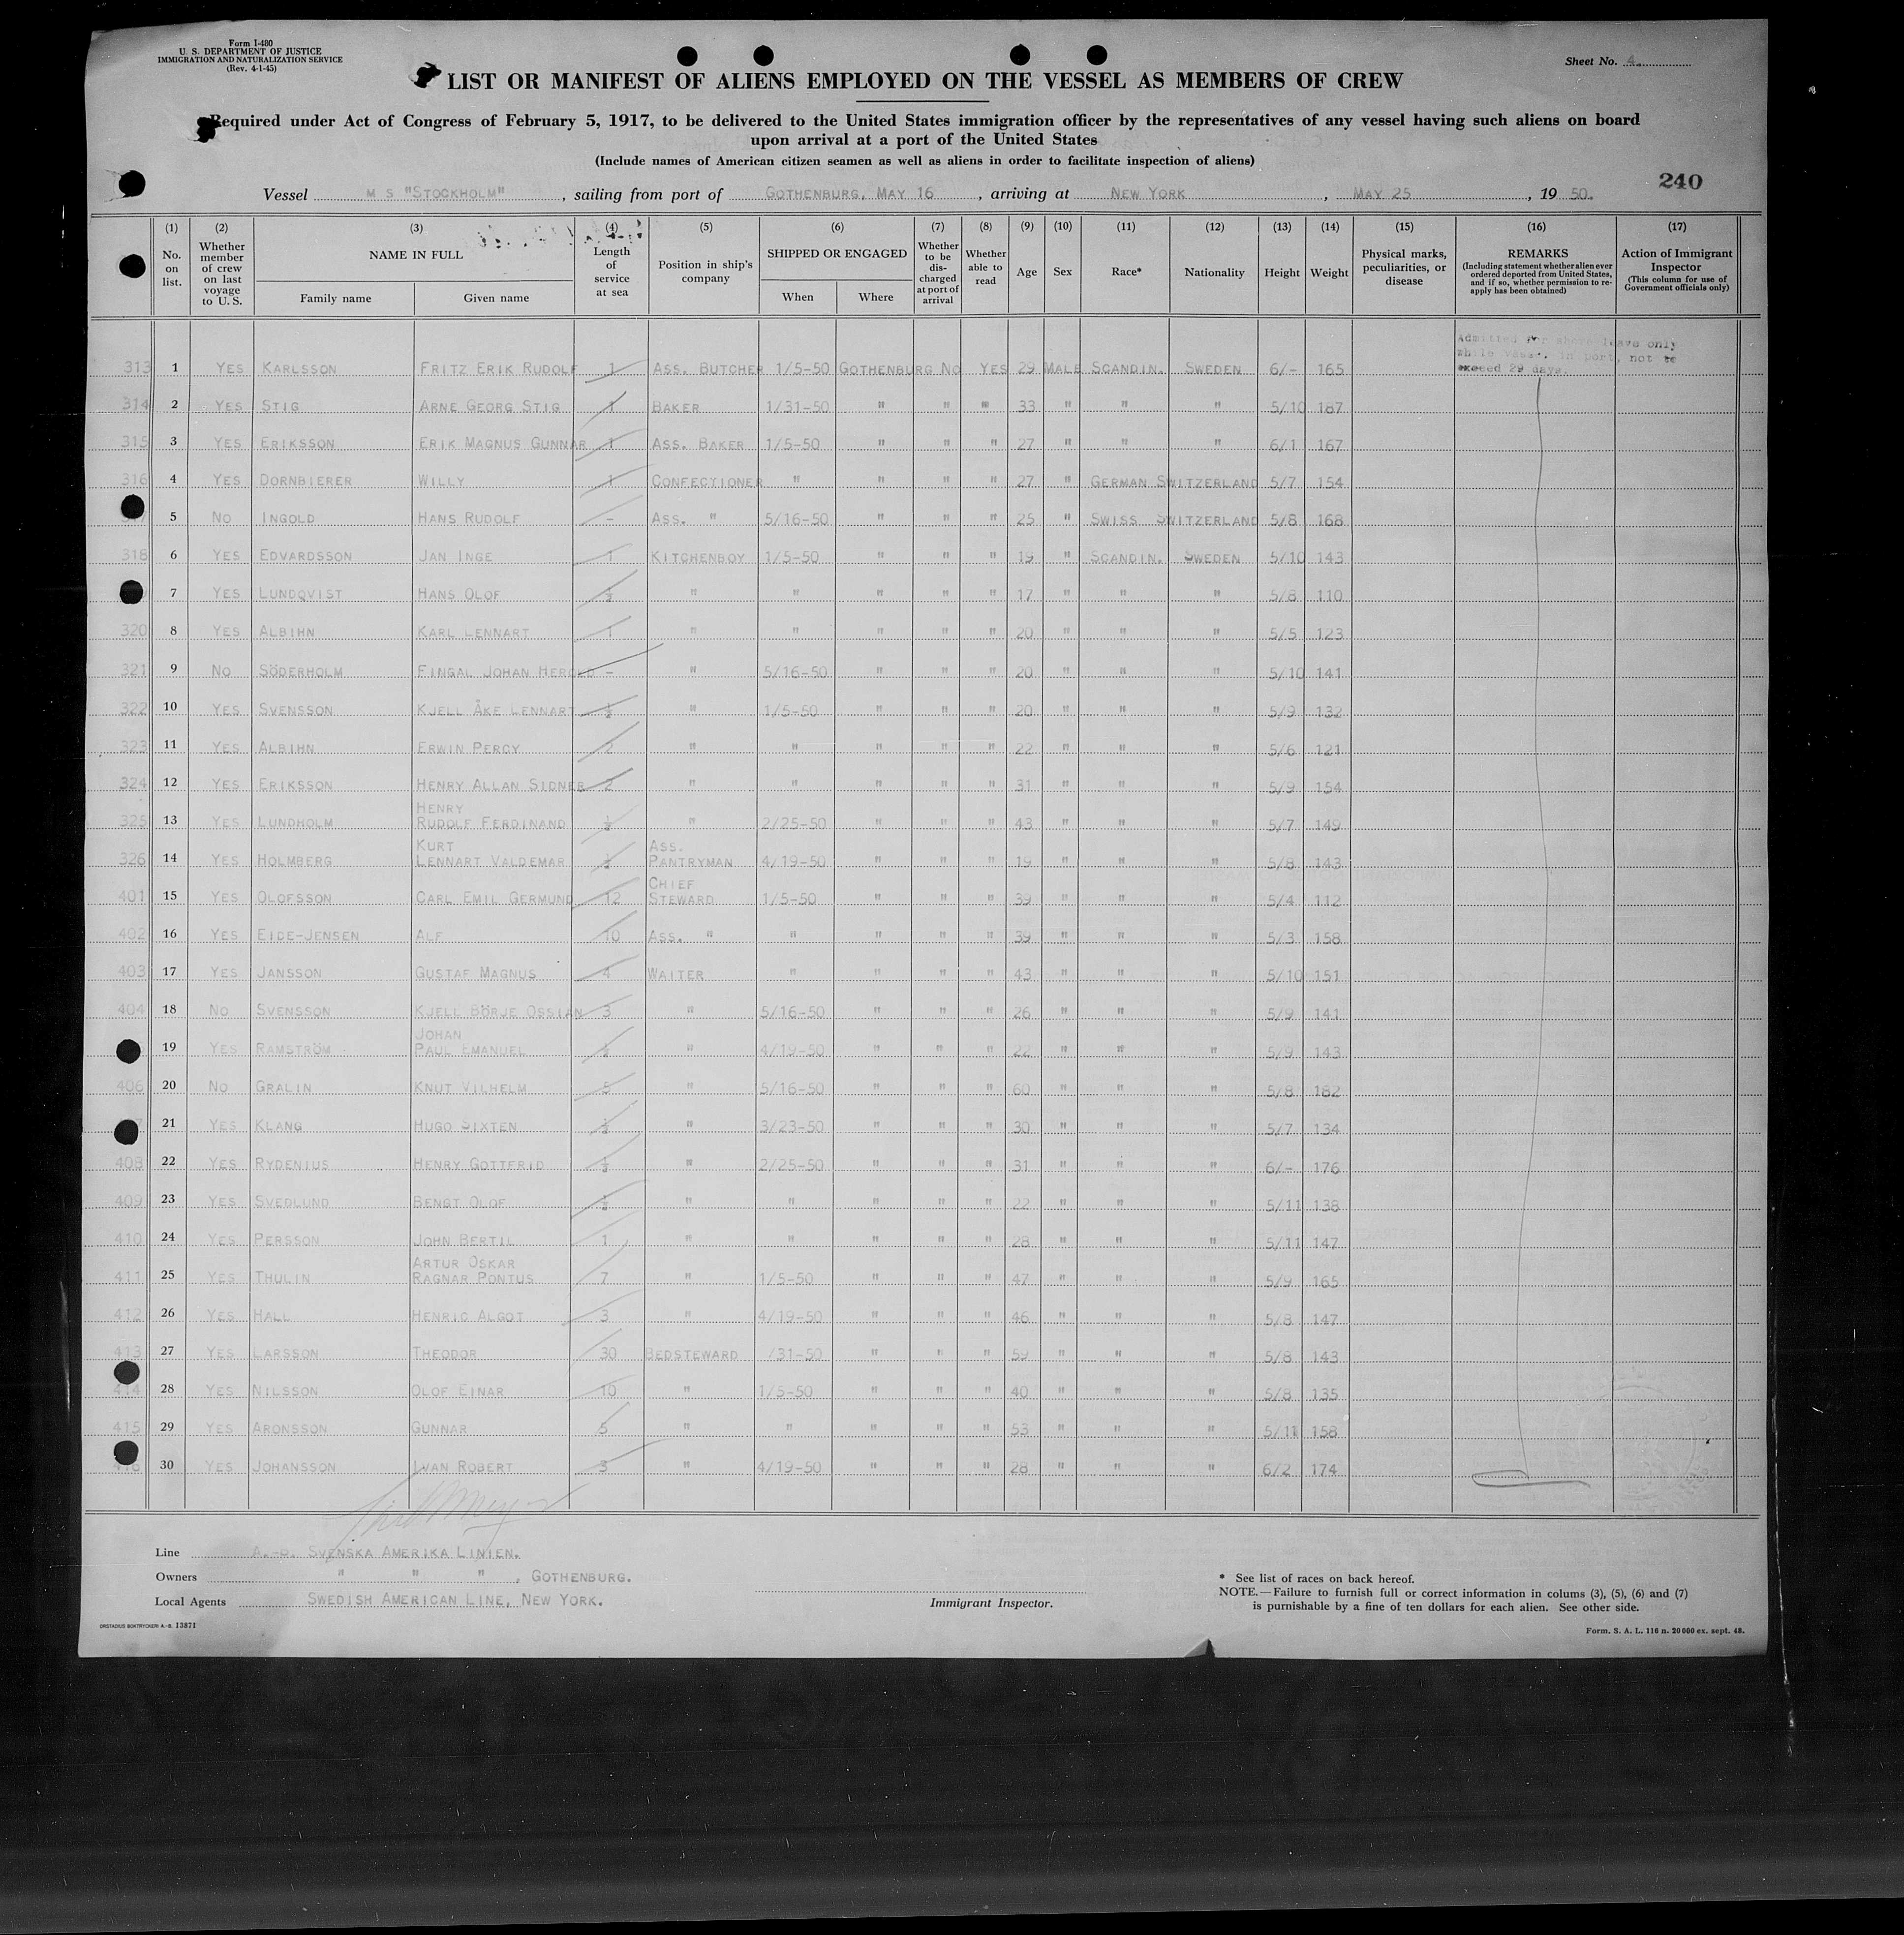 Form I-480
U. S. DEPARTMENT OF JUSTICE
IMMIGRATION AND NATURALIZATION SERVICE
(Rev. 4-1-45)
Sheet No. 4
LIST OR MANIFEST OF ALIENS EMPLOYED ON THE VESSEL AS MEMBERS OF CREW
Required under Act of Congress of February 5, 1917, to be delivered to the United States immigration officer by the representatives of any vessel having such aliens on board
upon arrival at a port of the United States
(Include names of American citizen seamen as well as aliens in order to facilitate inspection of aliens)
240
Vessel M S "STOCKHOLM", sailing from port of GOTHENBURG, MAY 16, arriving at NEW YORK, MAY 25, 19 50.
(1) No. on list.
(2) Whether member of crew on last voyage to U. S.
(3) NAME IN FULL Family name Given name
(4) Length of service at sea
(5) Position in ship's company
(6) SHIPPED OR ENGAGED When Where
(7) Whether to be discharged at port of arrival
(8) Whether able to read
(9) Age
(10) Sex
(11) Race*
(12) Nationality
(13) Height
(14) Weight
(15) Physical marks, peculiarities, or disease
(16) REMARKS (Including statement whether alien ever ordered deported from United States, and if so, whether permission to re-apply has been obtained)
(17) Action of Immigrant Inspector (This column for use of Government officials only)
Admitted for shore leave only
while vessel in port, not to
exceed 29 days.
313 1 YES KARLSSON FRITZ ERIK RUDOLF 1 ASS. BUTCHER 1/5-50 GOTHENBURG NO YES 29 MALE SCANDIN. SWEDEN 6/- 165
314 2 YES STIG ARNE GEORG STIG 1 BAKER 1/31-50 " " " 33 " " " 5/10 187
315 3 YES ERIKSSON ERIK MAGNUS GUNNAR 1 ASS. BAKER 1/5-50 " " " 27 " " " 6/1 167
316 4 YES DORNBIERER WILLY 1 CONFECTIONER " " " " 27 " GERMAN SWITZERLAND 5/7 154
5 NO INGOLD HANS RUDOLF - ASS. " 5/16-50 " " " 25 " SWISS SWITZERLAND 5/8 168
318 6 YES EDVARDSSON JAN INGE 1 KITCHENBOY 1/5-50 " " " 19 " SCANDIN. SWEDEN 5/10 143
7 YES LUNDQVIST HANS OLOF ½ " " " " " 17 " " " 5/8 110
320 8 YES ALBIHN KARL LENNART 1 " " " " " 20 " " " 5/5 123
321 9 NO SÖDERHOLM FINGAL JOHAN HEROLD - " 5/16-50 " " " 20 " " " 5/10 141
322 10 YES SVENSSON KJELL ÅKE LENNART ½ " 1/5-50 " " " 20 " " " 5/9 132
323 11 YES ALBIHN ERWIN PERCY 2 " " " " " 22 " " " 5/6 121
324 12 YES ERIKSSON HENRY ALLAN SIDNER 2 " " " " " 31 " " " 5/9 154
325 13 YES LUNDHOLM HENRY RUDOLF FERDINAND ½ " 2/25-50 " " " 43 " " " 5/7 149
326 14 YES HOLMBERG KURT LENNART VALDEMAR ½ ASS. PANTRYMAN 4/19-50 " " " 19 " " " 5/8 143
401 15 YES OLOFSSON CARL EMIL GERMUND 12 CHIEF STEWARD 1/5-50 " " " 39 " " " 5/4 112
402 16 YES EIDE-JENSEN ALF 10 ASS. " " " " " 39 " " " 5/3 158
403 17 YES JANSSON GUSTAF MAGNUS 4 WAITER " " " " 43 " " " 5/10 151
404 18 NO SVENSSON KJELL BÖRJE OSSIAN 3 " 5/16-50 " " " 26 " " " 5/9 141
19 YES RAMSTRÖM JOHAN PAUL EMANUEL ½ " 4/19-50 " " " 22 " " " 5/9 143
406 20 NO GRALIN KNUT VILHELM 5 " 5/16-50 " " " 60 " " " 5/8 182
21 YES KLANG HUGO SIXTEN ½ " 3/23-50 " " " 30 " " " 5/7 134
408 22 YES RYDENIUS HENRY GOTTFRID ½ " 2/25-50 " " " 31 " " " 6/- 176
409 23 YES SVEDLUND BENGT OLOF ½ " " " " " 22 " " " 5/11 138
410 24 YES PERSSON JOHN BERTIL 1 " " " " " 28 " " " 5/11 147
411 25 YES THULIN ARTUR OSKAR RAGNAR PONTUS 7 " 1/5-50 " " " 47 " " " 5/9 165
412 26 YES HALL HENRIC ALGOT 3 " 4/19-50 " " " 46 " " " 5/8 147
413 27 YES LARSSON THEODOR 30 BEDSTEWARD /31-50 " " " 59 " " " 5/8 143
414 28 YES NILSSON OLOF EINAR 10 " 1/5-50 " " " 40 " " " 5/8 135
415 29 YES ARONSSON GUNNAR 5 " " " " " 53 " " " 5/11 158
30 YES JOHANSSON IVAN ROBERT 3 " 4/19-50 " " " 28 " " " 6/2 174
Line A.-B. SVENSKA AMERIKA LINIEN.
Owners " " ", GOTHENBURG.
Local Agents SWEDISH AMERICAN LINE, NEW YORK.
Immigrant Inspector.
* See list of races on back hereof.
NOTE.—Failure to furnish full or correct information in colums (3), (5), (6) and (7)
is purnishable by a fine of ten dollars for each alien. See other side.
ORSTADIUS BOKTRYCKERI A.-B. 13871
Form. S. A. L. 116 n. 20 000 ex. sept. 48.